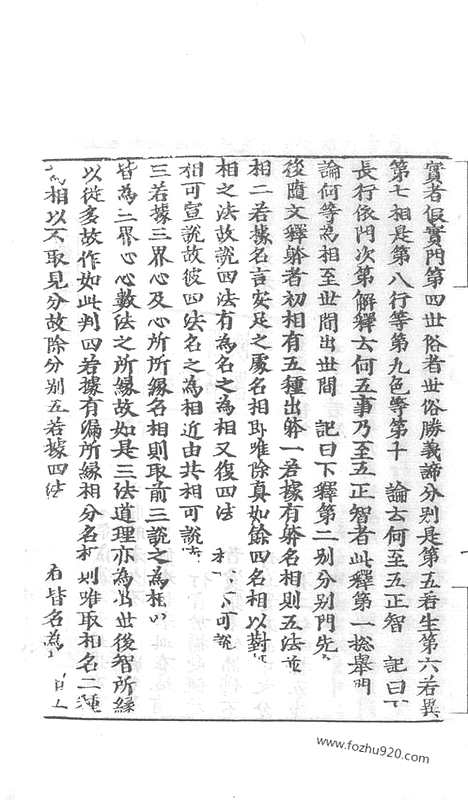 實者假實門第四世俗者世俗勝義諦分別是第五若生第六若異
第七相是第八行等第九色等第十　論云何至五正智　記曰下
長行依門次第解釋云何五事乃至五正智者此釋第一揔舉門
論何等為相至世間出世間　記曰下釋第二別分別門先
後隨文釋躰者初相有五種出躰一若據有躰名相則五法並
相二若據名言安足之處名相即唯除真如餘四名相以對
相之法故說四法有為名之為相又復四法　　可說
相可宣說故彼四法名之為相近由共相可說
三若據三界心及心所所緣名相則取前三說之為相
皆為三界心心數法之所緣故如是三法道理亦為出世後智所緣
以從多故作如此判四若據有漏所緣相分名相則唯取相名二種
為相以不取見分故除分別五若據四法　　皆名為
www.fozhu920.com